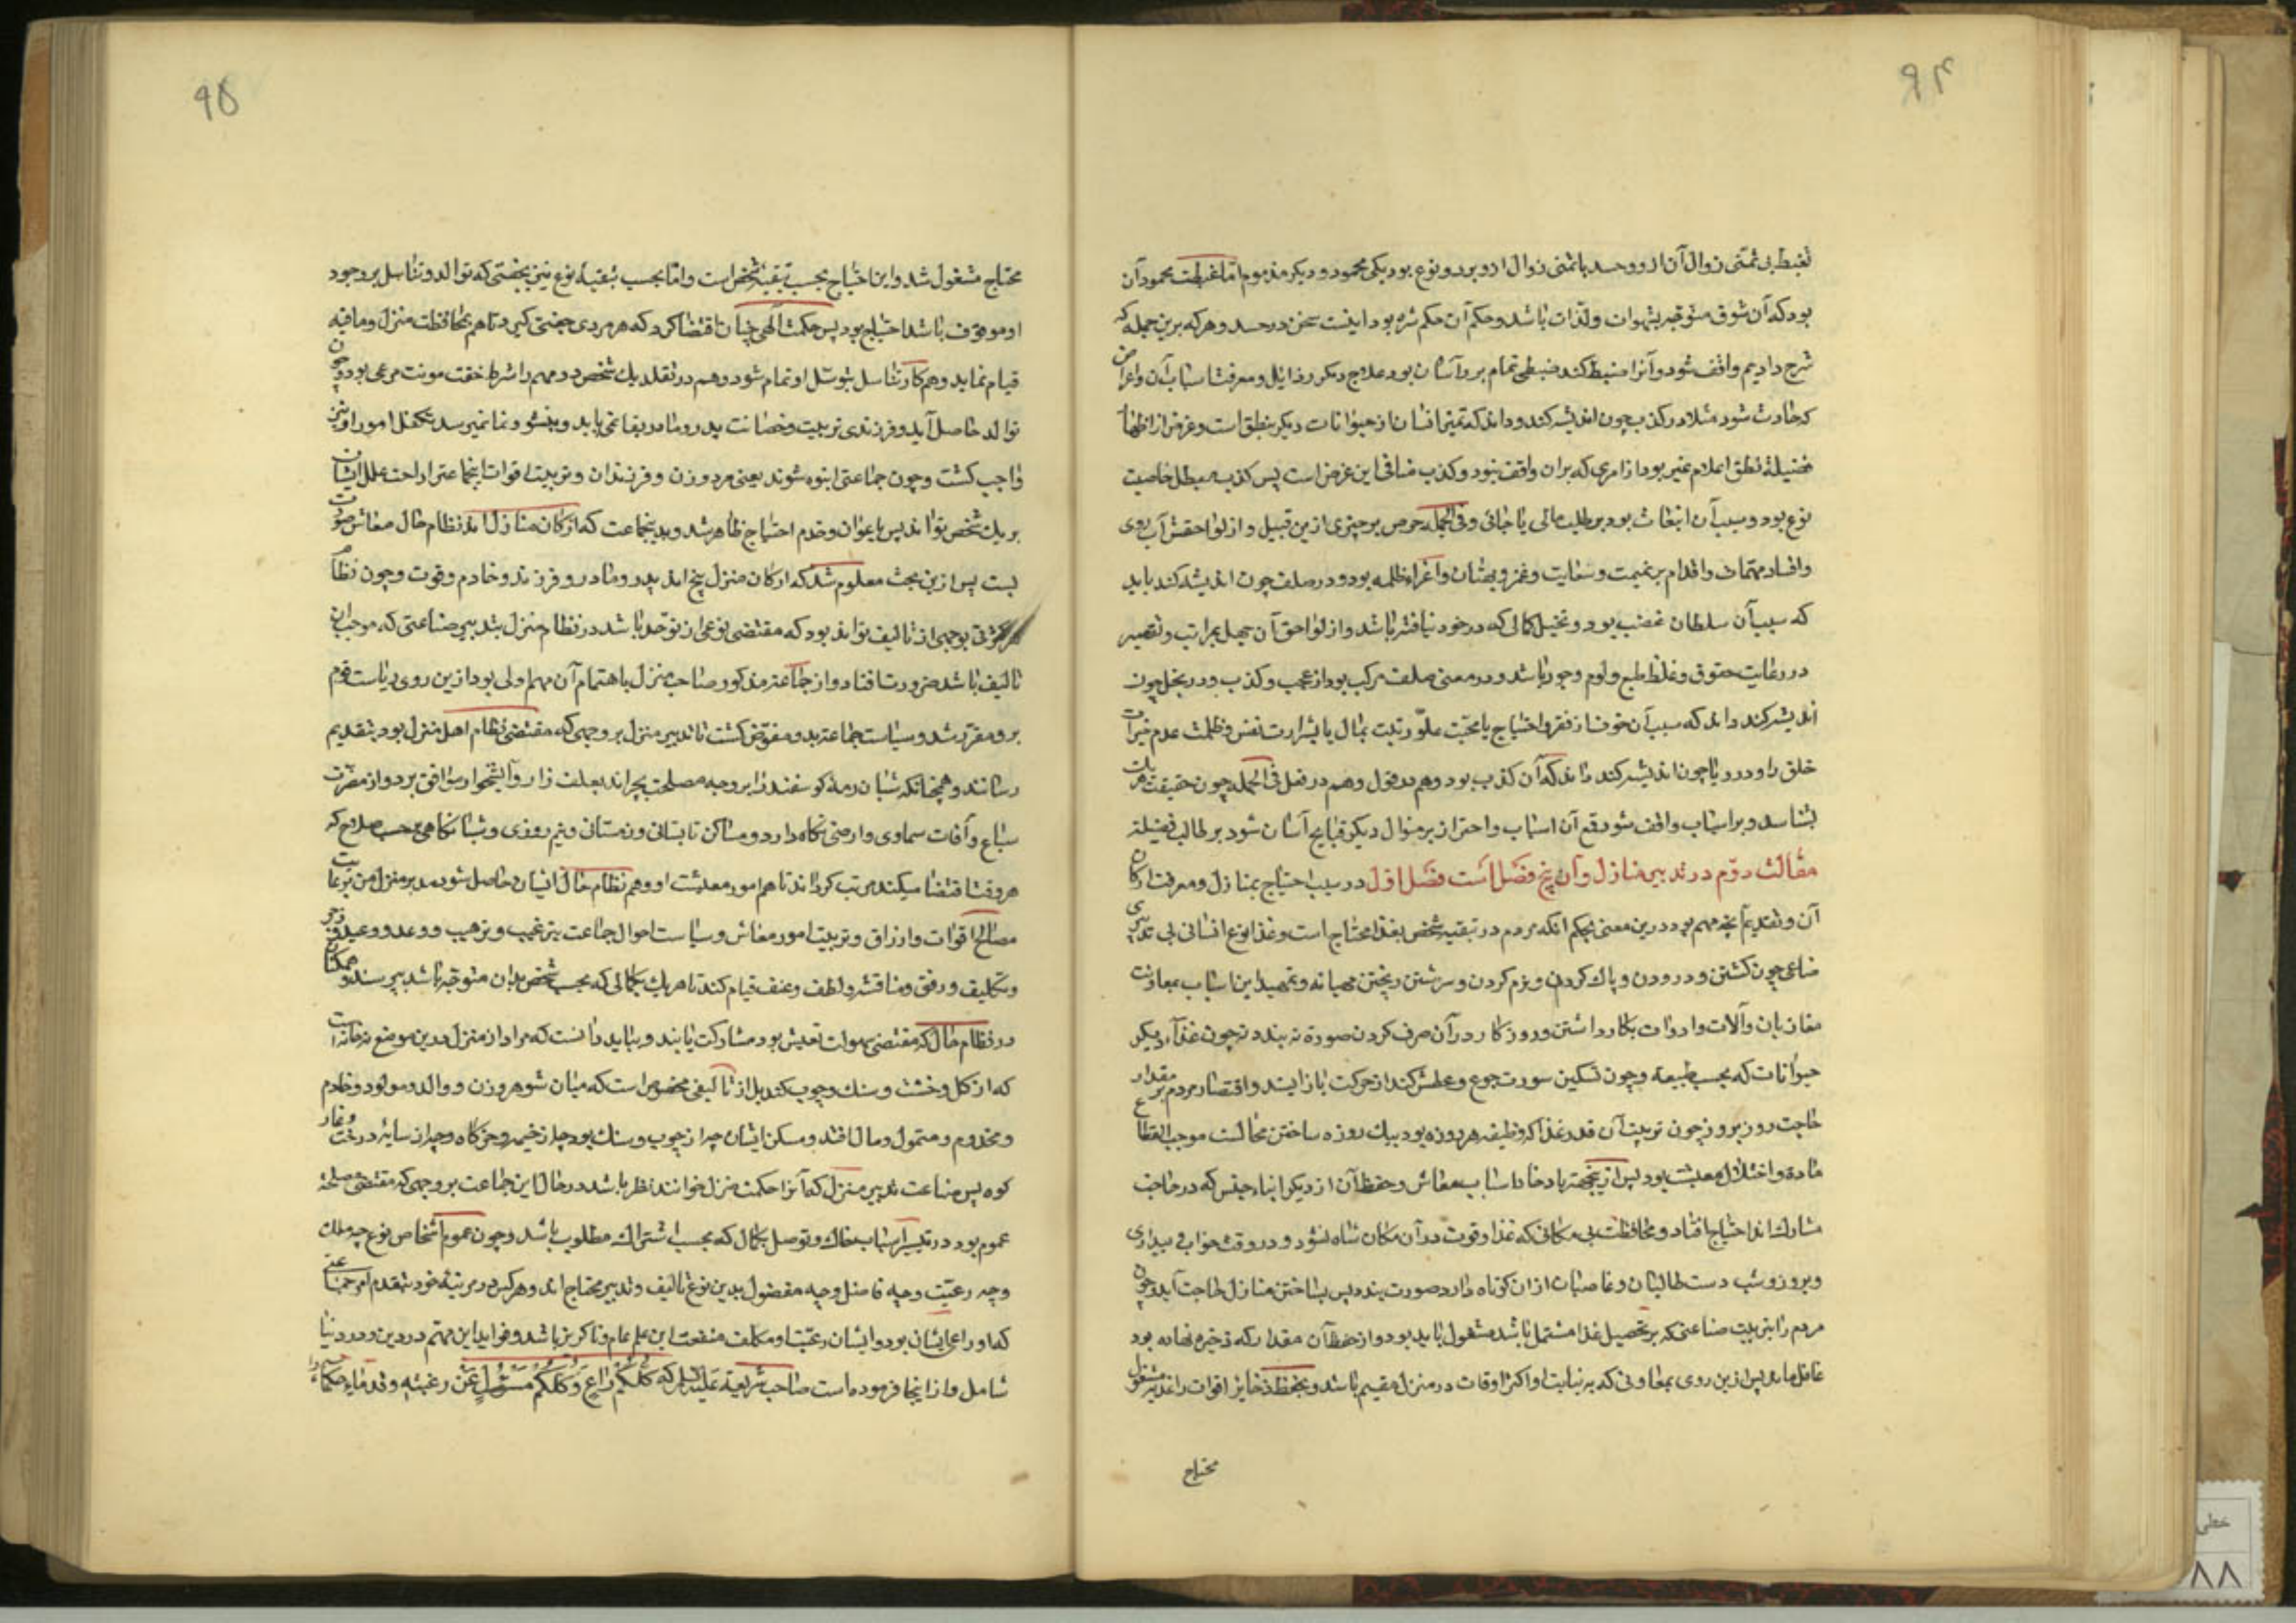 ۹۴
غبطت بی تمنی زوال آن ازو و حسد با تمنی زوال ازو بر دو نوع بود یکی محمود و دیگر مذموم اما غبطت محمود آن
بود که آن شوق متوجه بشهوات و لذات باشد و حکم آن حکم شره بود اینست سخن در حسد و هر که برین جمله که
شرح دادیم واقف شود و آنرا ضبط کند ضبطی تمام برو آسان بود علاج دیگر رذایل و معرفت اسباب آن و اعراض
که حادث شود مثلا در کذب چون اندیشه کند و داند که تمیز انسان از حیوانات دیگر بنطق است و غرض از اظهار
فضیلة نطق اعلام غیر بود از امری که بران واقف نبود و کذب منافی این غرض است پس کذب مبطل خاصیت
نوع بود و سبب آن انبعاث بود بر طلب مالی یا جاهی و فی الجمله حرص بر چیزی ازین قبیل و از لواحقش آب روی
و افساد مهمات و اقدام بر نمیمت و سعایت و غمز و بهتان و اغراء ظلمه بود و در صلف چون اندیشه کند باید
که سبب آن سلطان غضب بود و تخیل کمالی که در خود نیافته باشد و از لواحق آن جهل بمراتب و تقصیر
در رعایت حقوق و غلظ طبع و لوم و جور باشد و در معنی صلف مرکب بود از عجب و کذب و در بخل چون
اندیشه کند داند که سبب آن خوف از فقر و احتیاج یا محبت علو رتبت بمال یا شرارت نفس و طلب عدم خیرات
خلق را و در ریا چون اندیشه کند داند که آن کذب بود و هم در قول و هم در فعل فی الجمله چون حقیقت هر یک
بشناسد و بر اسباب واقف شود قمع آن اسباب و احتراز بر منوال دیگر قبایح آسان شود بر طالب فضیلة
مقالت دوم در تدبیر منازل و آن پنج فصل است فصل اول در سبب احتیاج بمنازل و معرفت ارکان
آن و تقدیم آنچه مهم بود درین معنی بحکم انکه مردم در تبقیه شخص بغذا محتاج است و غذا نوع انسانی بی تدبیری
صناعی چون کشتن و درودن و پاک کردن و نرم کردن و سرشتن و پختن مهیا نه و تمهید این اسباب بمعاونت
معاونان و آلات و ادوات بکار داشتن و روزکار در آن صرف کردن صورة نه بندد نه چون غذاء دیگر
حیوانات که بحسب طبیعه و چون تسکین سورت جوع و عطش کند از حرکت باز ایستد و اقتصار مردم بر مقدار
حاجت روز بروز چون ترتیب آن قدر غذا که وظیفه هر روزه بود بیک روزه ساختن محالست موجب انقطاع
ماده و اختلال معیشت بود پس ازین جهة بادخار اسباب معاش و حفظ آن از دیگر ابناء جنس که در حاجت
مشارک اند احتیاج افتاد و محافظت بی مکانی که غذا و قوت در آن مکان تباه نشود و در وقت خواب و بیداری
و بروز و شب دست طالبان و غاصبان از ان کوتاه دارد صورت نبندد پس بساختن منازل حاجت آید و چون
مردم را بترتیب صناعتی که بر تحصیل غذا مشتمل باشد مشغول باید بود و از حفظ آن مقدار که ذخیره نهاده بود
غافل ماند پس ازین روی بمعاونی که به نیابت او اکثر اوقات در منزل مقیم باشد و بحفظ ذخایر اقوات و اغذیه مشغول
محتاج
۹۵
محتاج مشغول شد و این احتیاج بحسب تبقیه شخص است و اما بحسب تبقیه نوع نیز بجفتی که توالد و تناسل بر وجود
او موقوف باشد احتیاج بود پس حکمت الهی چنان اقتضا کرد که هر مردی جفتی گیرد تا هم بمحافظت منزل و مافیه
قیام نماید و هم کار تناسل بتوسل او تمام شود و هم در تقلد یک شخص دو مهم را شرط خفت مونت مرعی بود و چون
توالد حاصل آید و فرزند بی تربیت و حضانت پدر و مادر بقا نمی یابد و بنشو و نما نمیرسد تکفل امور او نیز
واجب گشت و چون جماعتی انبوه شوند یعنی مرد و زن و فرزندان و ترتیب اقوات اینجماعت و ازاحت علل ایشان
بر یک شخص تواند پس باعوان و خدم احتیاج ظاهر شد و بدینجماعت که ارکان منازل اند نظام حال معاش صورت
بست پس ازین بحث معلوم شد که ارکان منزل پنج اند پدر و مادر و فرزند و خادم و قوت و چون نظام
هر کثرتی بوجهی از تالیف تواند بود که مقتضی نوعی از توحد باشد در نظام منزل بتدبیر صناعتی که موجب آن
تالیف باشد ضرورت افتاد و از جماعت مذکور صاحب منزل باهتمام آن مهم اولی بود ازین روی ریاست قوم
برو مقرر شد و سیاست جماعت بدو مفوض گشت تا تدبیر منزل بر وجهی که مقتضی نظام اهل منزل بود بتقدیم
رسانند و همچنانکه شبان رمه گوسفند را بر وجه مصلحت بچراند بعلف زار و آبشخوار موافق برد و از مضرت
سباع و آفات سماوی و ارضی نگاه دارد و مساکن تابستانی و زمستانی و نیم روزی و شبانگاهی بر حسب صلاح که
هر وقت اقتضا میکند مرتب گرداند تا هم امور معیشت او و هم نظام حال ایشان حاصل شود مدبر منزل من برعایت
مصالح اقوات و ارزاق و ترتیب امور معاش و سیاست احوال جماعت بترغیب و ترهیب و وعد و وعید و زجر
و تکلیف و رفق و مناقشه و لطف و عنف قیام کند تا هر یک بکمالی که بحسب شخص بدان متوجه باشد برسند و همگنان
در نظام حال که مقتضی سهولت تعیش بود مشارکت یابند و بباید دانست که مراد از منزل درین موضع نه خانه است
که از گل و خشت و سنگ و چوب کنند بل از تالیفی مخصوص است که میان شوهر و زن و والد و مولود و خادم
و مخدوم و متمول و مال افتد و مسکن ایشان چه از چوب و سنگ بود چه از خیمه و خرگاه و چه از سایه درخت و غار
کوه پس صناعت تدبیر منزل که آنرا حکمت منزل خوانند نظر باشد در حال این جماعت بر وجهی که مقتضی مصلحة
عموم بود در تیسیر اسباب معاش و توصل بکمال که بحسب اشتراک مطلوب باشد و چون عموم اشخاص نوع چه ملک
و چه رعیت و چه فاضل و چه مفضول بدین نوع تالیف و تدبیر محتاج اند و هر کس در مرتبه خود بتقدم امر جماعتی
که او راعی ایشان بود و ایشان رعیت او مکلف منفعت این علم عام و ناگزیر باشد و فواید این مهتم در دین و در دنیا
شامل و از اینجا فرموده است صاحب شریعة علیه السلام که کُلُّکُمْ رَاعٍ وَکُلُّکُمْ مَسْئُولٌ عَنْ رعیته و قدماء حکما را
خطی
۸۸